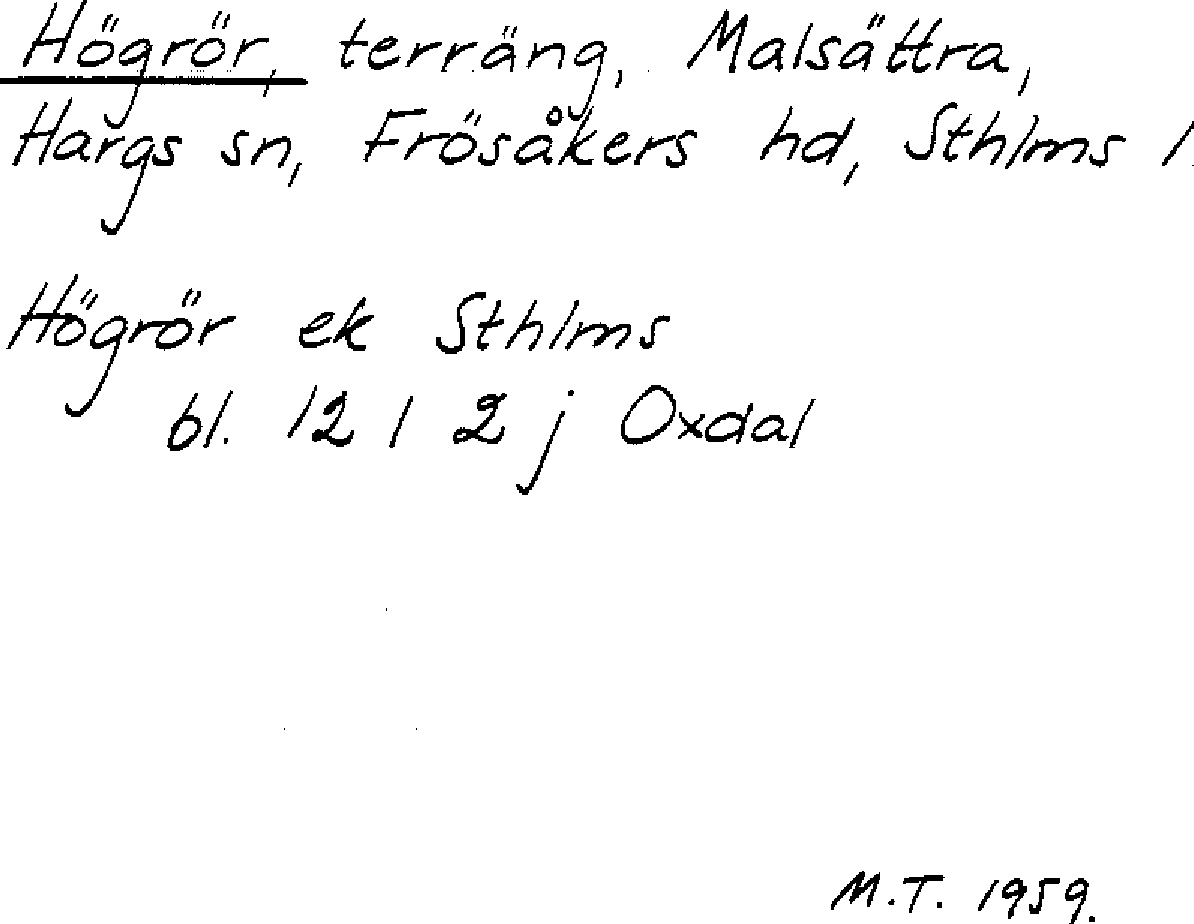 Högrör, terräng, Malsättra,
Hargs sn, Frösåkers hd, Sthlms l.
Högrör ek Sthlms
bl. 12 I 2 j Oxdal
M.T. 1959.